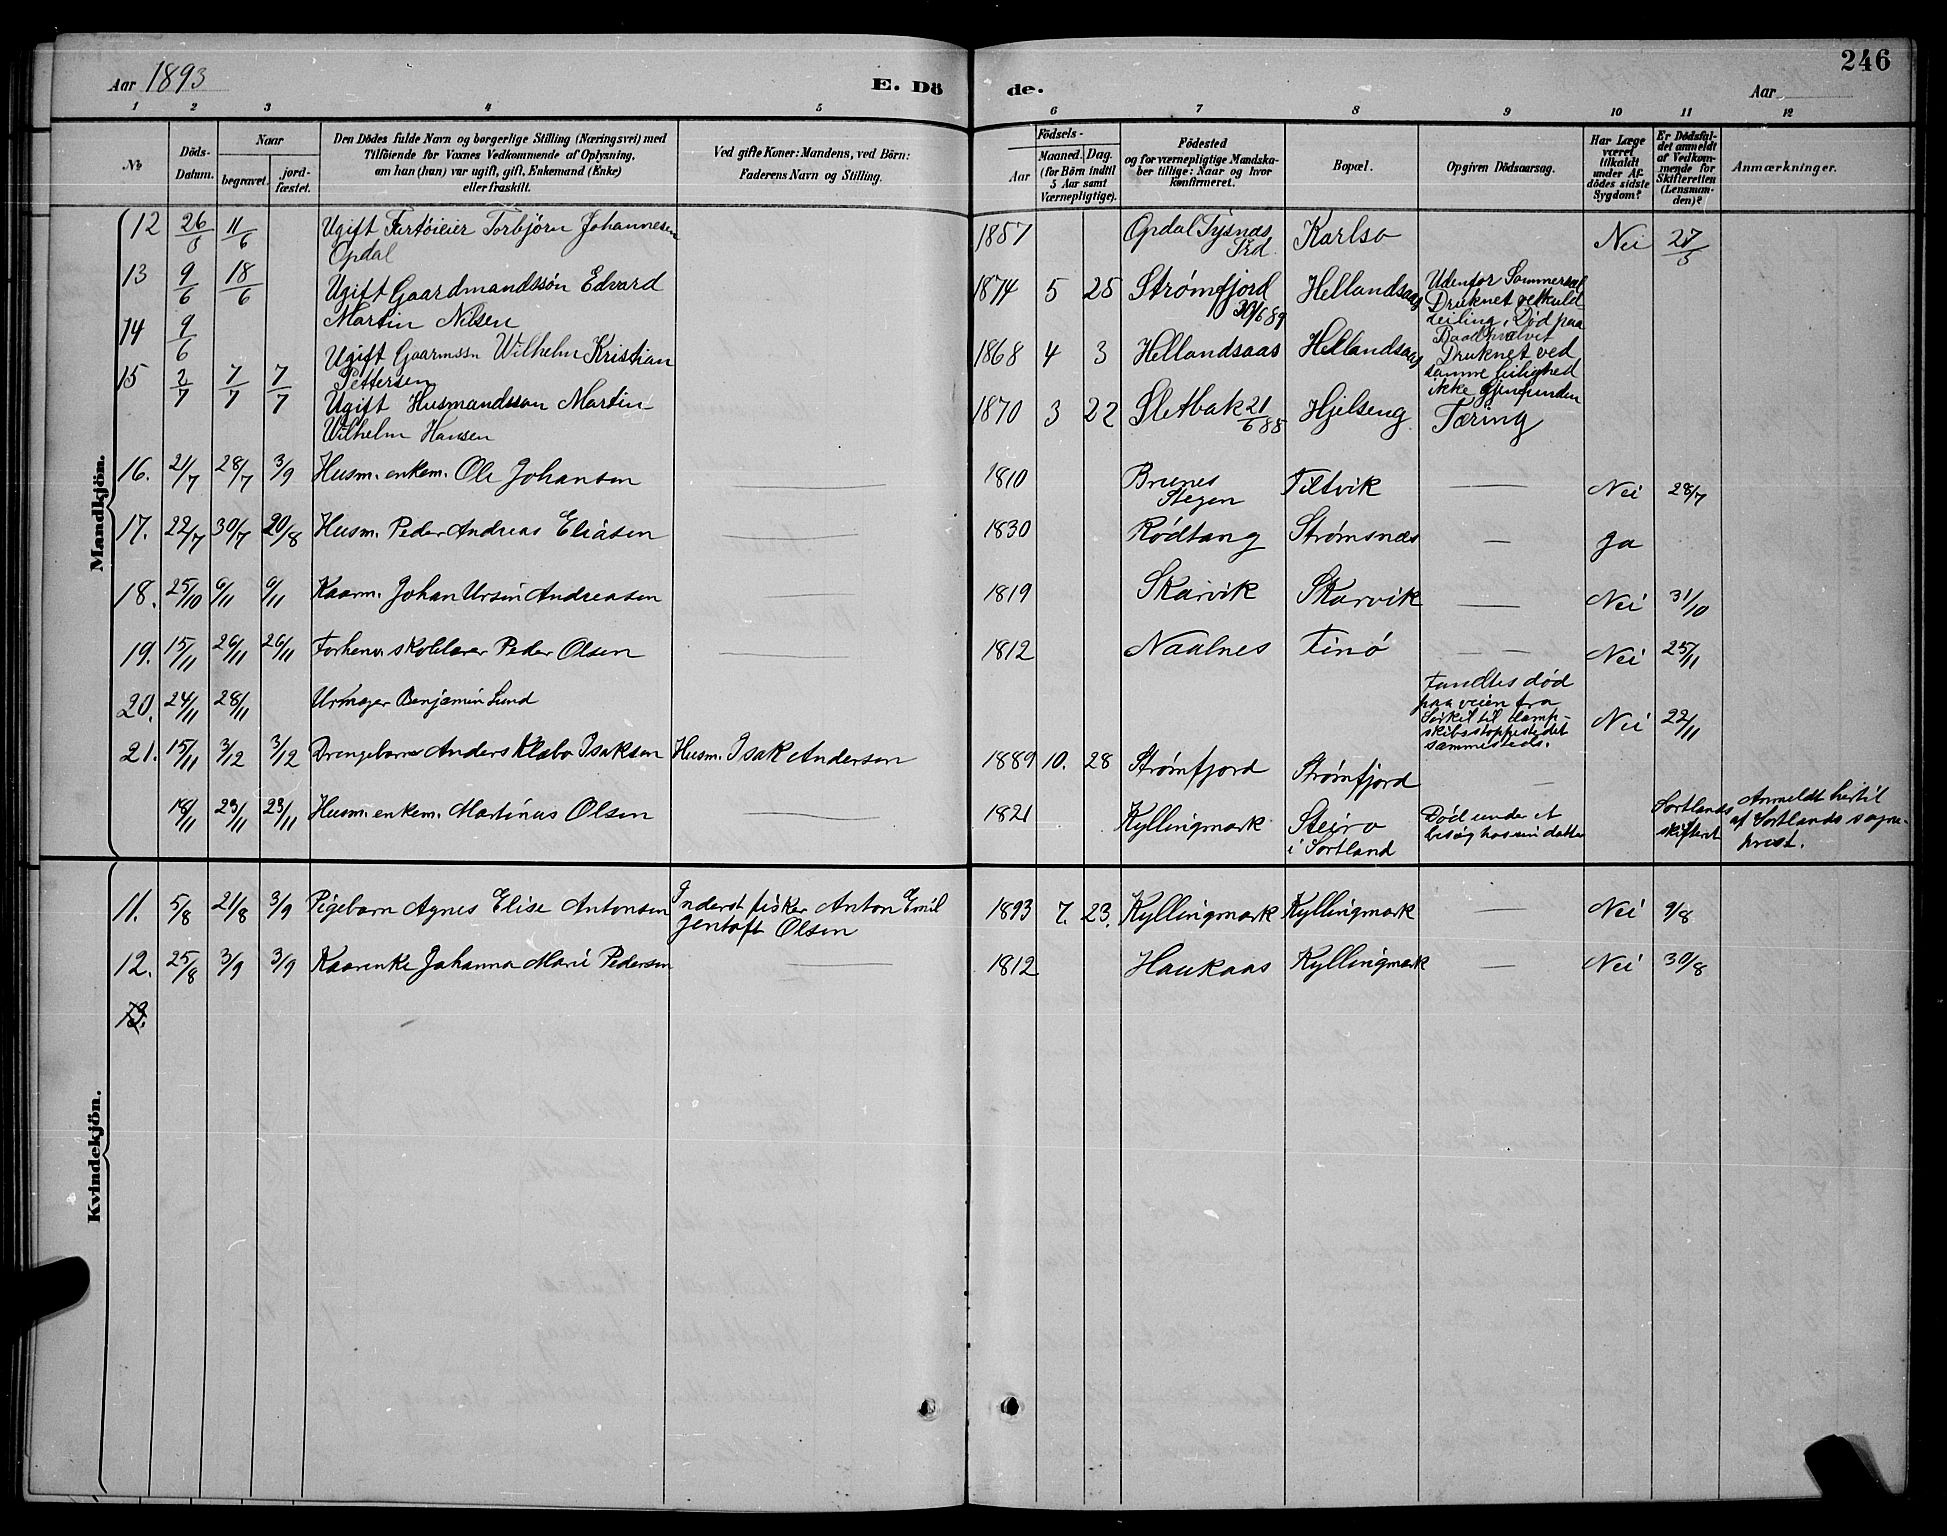 246
Aar 1893
E. Dö
de.
Aar
1 2 3 4 5 6 7 8 9 10 11 12
№
Döds-
Datum.
Naar
begravet.
jord-
fæstet.
Den Dödes fulde Navn og borgerlige Stilling (Næringsvei) med
Tilföiende for Voxnes Vedkommende af Oplysning,
om han (hun) var ugift, gift, Enkemand (Enke)
eller fraskilt.
Ved gifte Koner: Mandens, ved Börn:
Faderens Navn og Stilling.
Födsels-
Aar
Maaned. Dag.
(for Börn indtil
5 Aar samt
Værnepligtige).
Födested
og for værnepligtige Mandska-
ber tillige: Naar og hvor
konfirmeret.
Bopæl.
Opgiven Dödsaarsag.
Har Læge
været
tilkaldt
under Af-
dödes sidste
Sygdom?
Er Dödsfal-
det anmeldt
af Vedkom-
mende for
Skifteretten
(Lensman-
den)?
Anmærkninger.
Mandkjön.
12 26/5 11/6 Ugift Fartöieier Torbjörn Johannesen
Opdal
1857 Opdal Tysnæs
Karlsø Nei 27/5
13 9/6 18/6 Ugift Gaardmandssön Edvard
Martin Nilsen
1874 5 25 Strømfjord
30/6 89
Hellandsaas
Druknet
Død paa
14 9/6 Ugift Gaarmssn Wilhelm Kristian
Pettersen
1868 4 3 Hellandsaas Hellandsaas Druknet ved
samme leilighed
ikke gjenfunden
15 2/7 7/7 7/7 Ugift Husmandsson Martin
Wilhelm Hansen
1870 3 22 Sletbak 21/6 85 Hjelseng Tæring
16. 21/7 28/7 3/9 Husm. enkem. Ole Johansen — 1810 Brunes
Stegen
Tiltvik — Nei 28/7
17. 22/7 30/7 20/8 Husm. Peder Andreas Eliasen — 1830 Rødtang Strømsnæs — Ja
18. 25/10 6/11 6/11 Kaarm. Johan Ursin Andreasen 1819 Skarvik Skarvik — Nei 31/10
19. 15/11 26/11 26/11 Forhenv. skolelærer Peder Olsen — 1812 Naalnes Finø — — Nei 25/11
20. 24/11 28/11 Urmager Benjamin Lund
Fandtes død
paa veien fra
til damp-
skibsstoppestedet
sammesteds.
Nei 22/11
21. 15/11 3/12 3/12 Drengebarn Anders Klæbo Isaksen Husm. Isak Andersen 1889 10. 28 Strømfjord Strømfjord —
18/11 23/11 23/11 Husm. enkem. Martinus Olsen — 1821 Kyllingmark Steiro
i Sortland
Død under et
besøg hos sin datter
Sortlands
skifteret
Anmeldt hertil
af Sortlands sogne-
prest.
Kvindekjön.
11. 5/8 21/8 3/9 Pigebarn Agnes Elise Antonsen Inderst fisker Anton Emil
Gentoft Olsen
1893 7. 23. Kyllingmark Kyllingmark — Nei 9/8
12. 25/8 3/9 3/9 Kaarenke Johanna Marie Pedersen — 1812 Haukaas Kyllingmark — Nei 30/8
13.